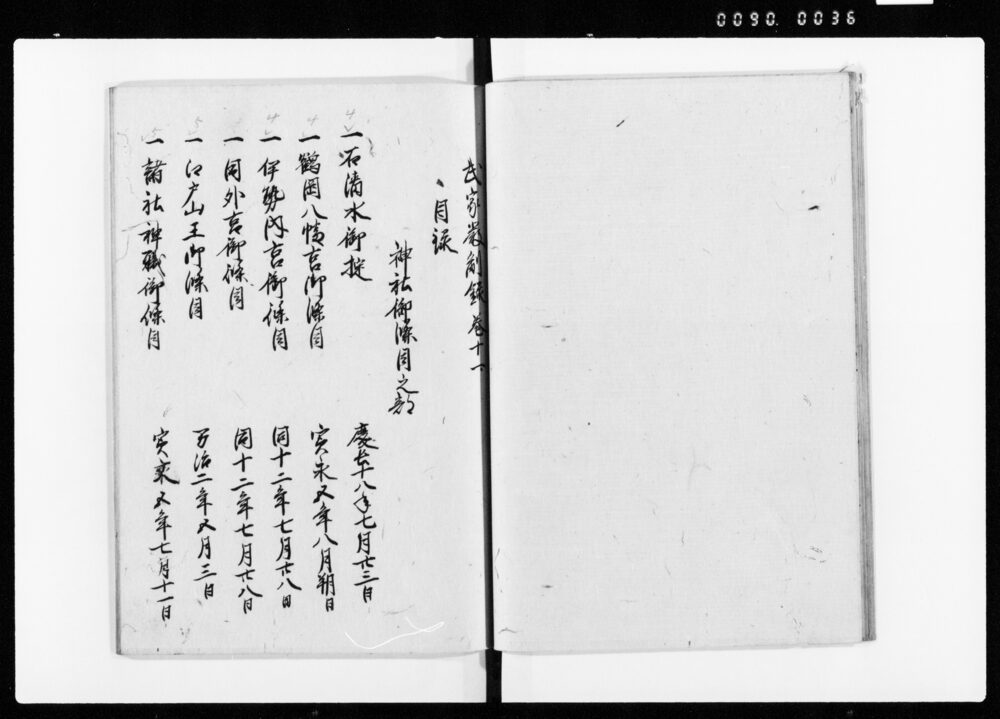 0090. 0036
武家嚴制錄 卷十一
目录
神社御條目之部
一 石清水御掟 慶長十八年七月廿三日
一 鶴岡八幡宮御條目 寛永五年八月朔日
一 伊勢内宮御條目 同十二年七月廿八日
一 同外宮御條目 同十二年七月廿八日
一 江戸山王御條目 万治二年五月三日
一 諸社神職御條目 寛文五年七月十一日